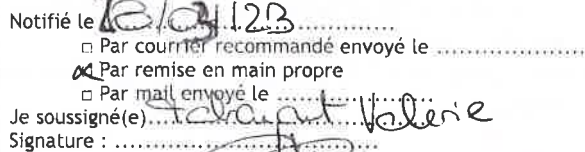 Notifié le ..................
□ Par courrier recommandé envoyé le ..................
☒ Par remise en main propre
□ Par mail envoyé le ..................
Je soussigné(e).......... Valerie
Signature : ..................